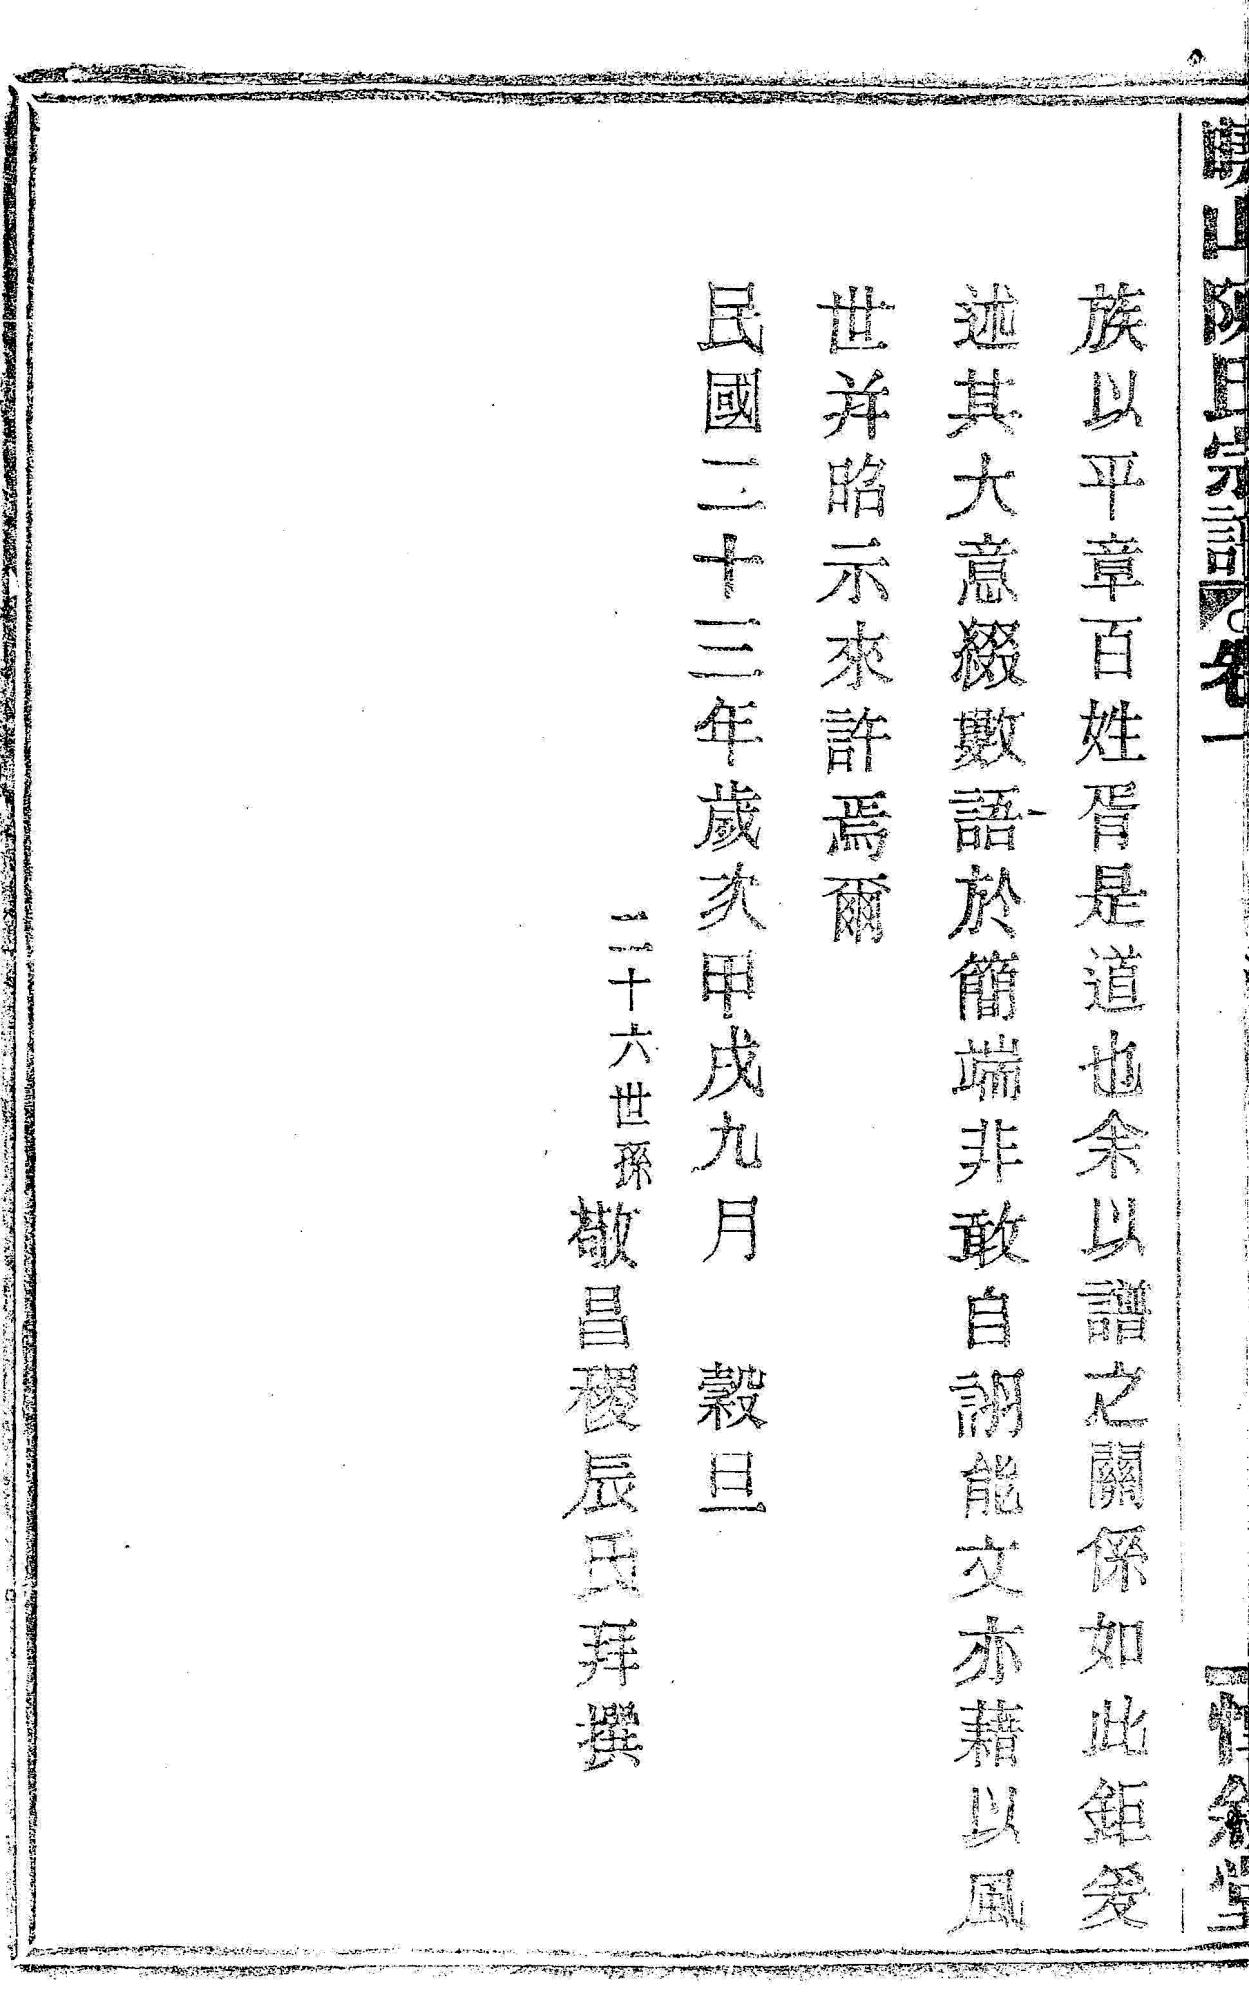 山陳氏宗譜 卷一
惇敘堂
族以平章百姓胥是道也余以譜之關係如此鉅爰
述其大意綴數語於簡端非敢自詡能文亦藉以風
世并昭示來許焉爾
民國二十三年歲次甲戌九月 穀旦
二十六世孫敬昌稷辰氏拜撰